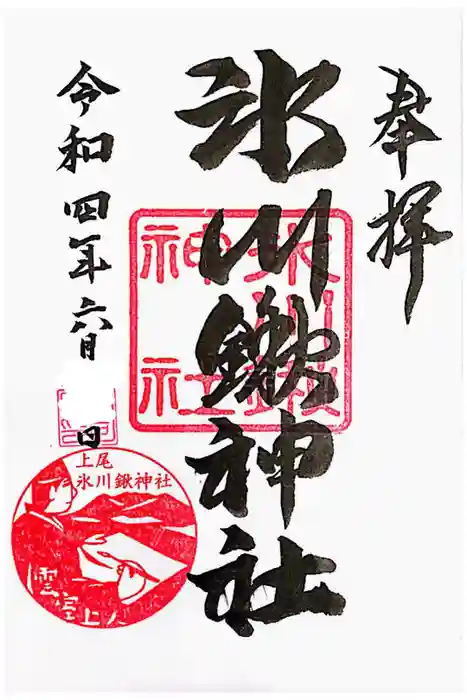 奉拝
氷川鍬神社
氷川鍬神社
令和四年六月 日
上尾
氷川鍬神社
雲室上人